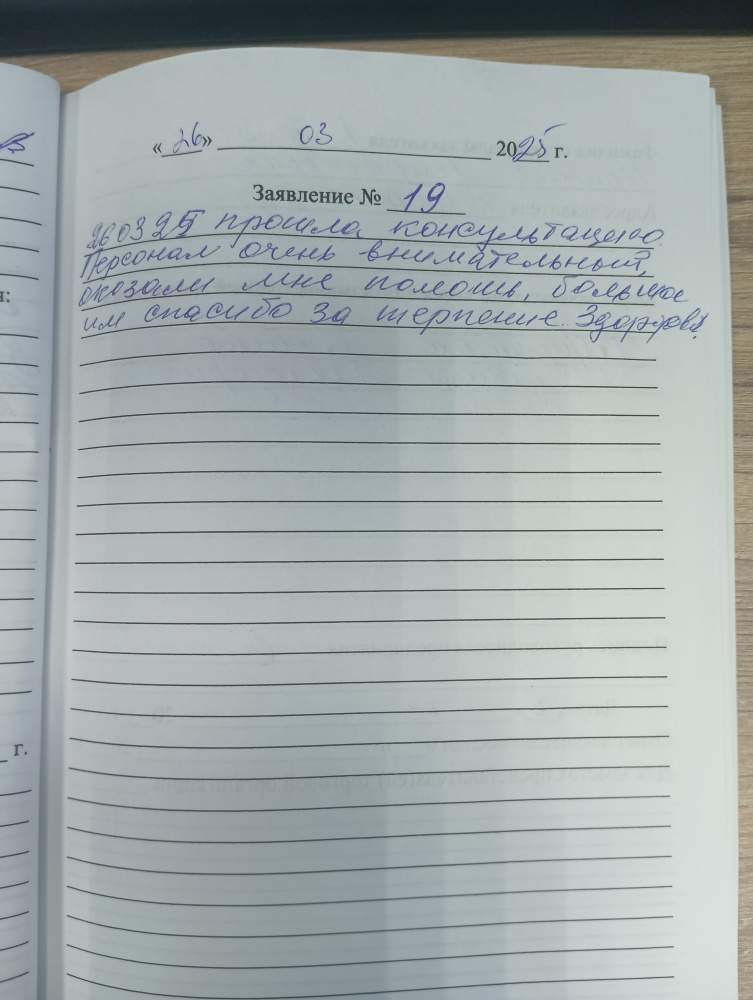 «26» 03 2025 г.
Заявление № 19
260325 прошла консультацию.
Персонал очень внимательный,
оказали мне помощь, большое
им спасибо за терпение. Здоровья!
г.